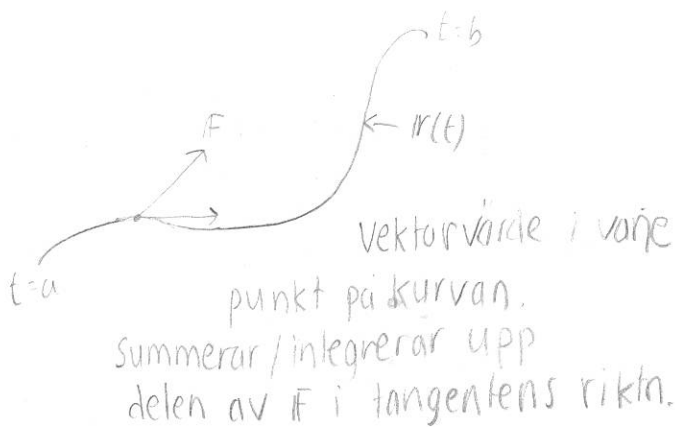 t=b
F
r(t)
t=a
vektorvärde i varje
punkt på kurvan.
summerar/integrerar upp
delen av F i tangentens riktn.